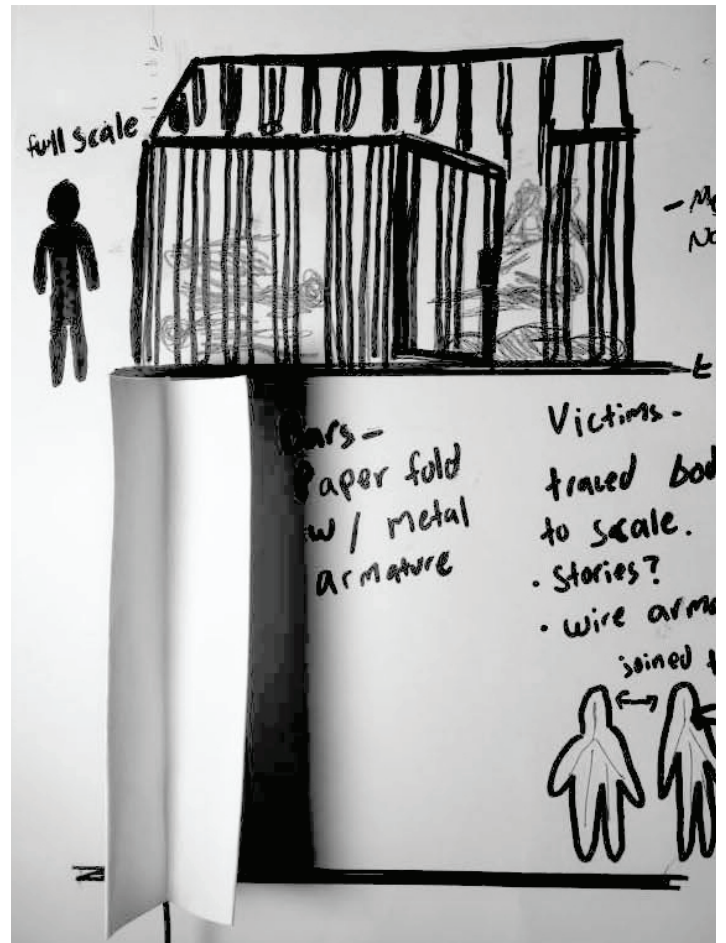 full scale
Bars-
Paper fold
w/ metal
armature
Victims-
traced
to scale.
• Stories?
• wire
joined